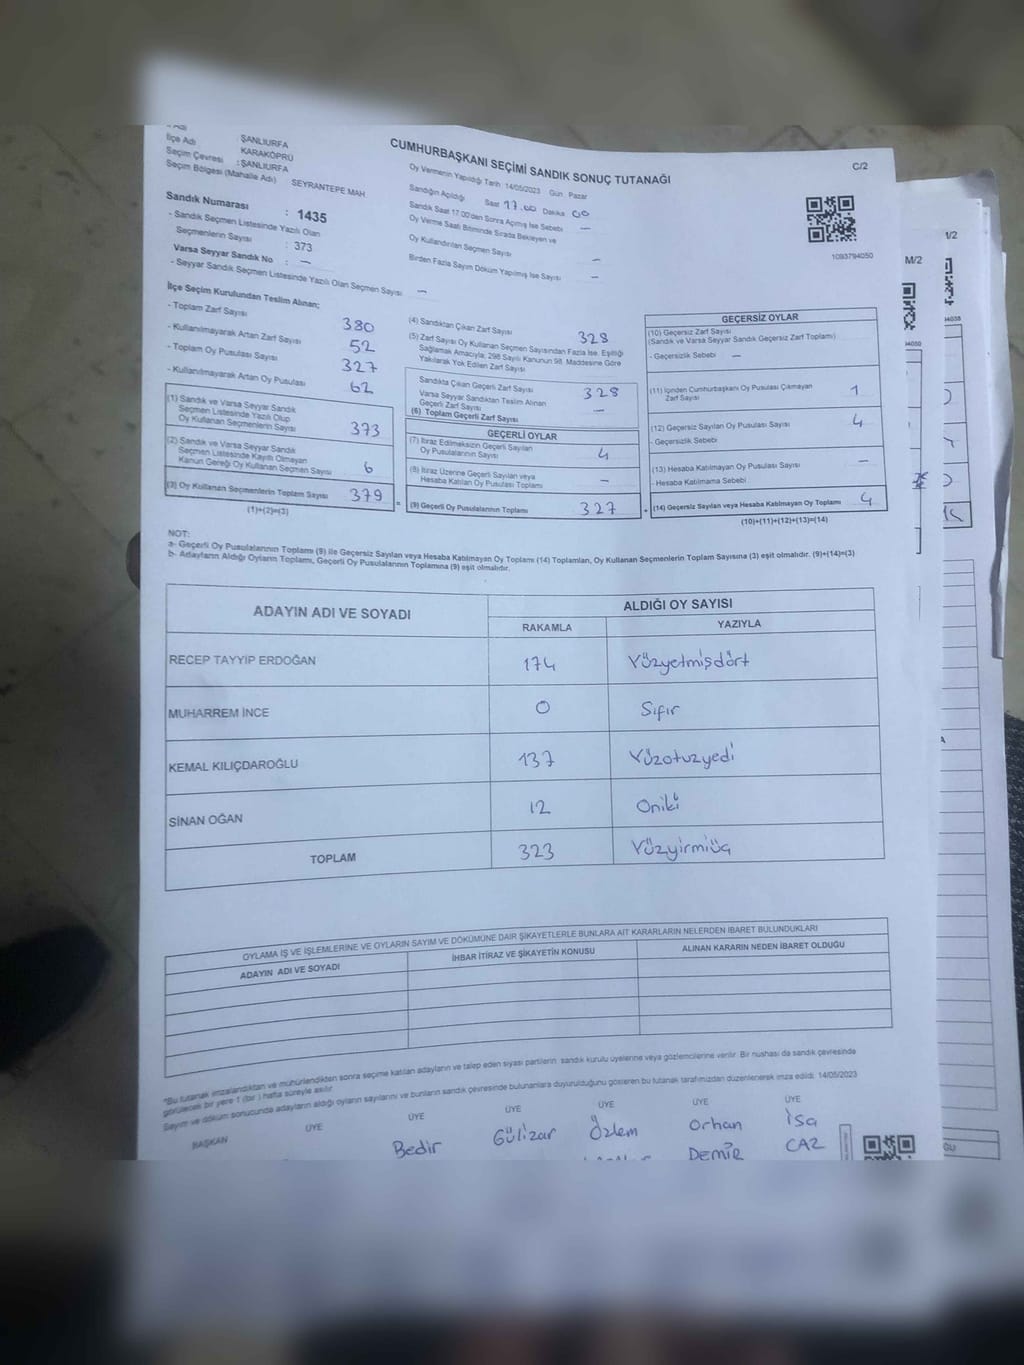 CUMHURBAŞKANI SEÇİMİ SANDIK SONUÇ TUTANAĞI
C/2
İlçe Adı
ŞANLIURFA
KARAKÖPRÜ
Seçim Çevresi : ŞANLIURFA
Seçim Bölgesi (Mahalle Adı) SEYRANTEPE MAH.
Sandık Numarası : 1435
- Sandık Seçmen Listesinde Yazılı Olan
Seçmenlerin Sayısı : 373
Varsa Seyyar Sandık No : —
- Seyyar Sandık Seçmen Listesinde Yazılı Olan Seçmen Sayısı —
Oy Vermenin Yapıldığı Tarih 14/05/2023 Gün Pazar
Sandığın Açıldığı Saat 17.00 Dakika 00
Sandık Saat 17.00'den Sonra Açılmış İse Sebebi —
Oy Verme Saati Bitiminde Sırada Bekleyen ve
Oy Kullandırılan Seçmen Sayısı —
Birden Fazla Sayım Döküm Yapılmış İse Sayısı —
1093794050
İlçe Seçim Kurulundan Teslim Alınan;
- Toplam Zarf Sayısı 380
- Kullanılmayarak Artan Zarf Sayısı 52
- Toplam Oy Pusulası Sayısı 327
- Kullanılmayarak Artan Oy Pusulası 62
(1) Sandık ve Varsa Seyyar Sandık
Seçmen Listesinde Yazılı Olup
Oy Kullanan Seçmenlerin Sayısı 373
(2) Sandık ve Varsa Seyyar Sandık
Seçmen Listesinde Kayıtlı Olmayan
Kanun Gereği Oy Kullanan Seçmen Sayısı 6
(3) Oy Kullanan Seçmenlerin Toplam Sayısı 379 =
(1)+(2)=(3)
(4) Sandıktan Çıkan Zarf Sayısı 328
(5) Zarf Sayısı Oy Kullanan Seçmen Sayısından Fazla İse, Eşitliği
Sağlamak Amacıyla; 298 Sayılı Kanunun 98. Maddesine Göre
Yakılarak Yok Edilen Zarf Sayısı
Sandıkta Çıkan Geçerli Zarf Sayısı 328
Varsa Seyyar Sandıktan Teslim Alınan
Geçerli Zarf Sayısı —
(6) Toplam Geçerli Zarf Sayısı
GEÇERLİ OYLAR
(7) İtiraz Edilmeksizin Geçerli Sayılan
Oy Pusulalarının Sayısı 4
(8) İtiraz Üzerine Geçerli Sayılan veya
Hesaba Katılan Oy Pusulası Toplamı —
(9) Geçerli Oy Pusulalarının Toplamı 327 +
GEÇERSİZ OYLAR
(10) Geçersiz Zarf Sayısı
(Sandık ve Varsa Seyyar Sandık Geçersiz Zarf Toplamı)
- Geçersizlik Sebebi —
(11) İçinden Cumhurbaşkanı Oy Pusulası Çıkmayan
Zarf Sayısı 1
(12) Geçersiz Sayılan Oy Pusulası Sayısı 4
- Geçersizlik Sebebi
(13) Hesaba Katılmayan Oy Pusulası Sayısı —
- Hesaba Katılmama Sebebi
(14) Geçersiz Sayılan veya Hesaba Katılmayan Oy Toplamı 4
(10)+(11)+(12)+(13)=(14)
NOT:
a- Geçerli Oy Pusulalarının Toplamı (9) ile Geçersiz Sayılan veya Hesaba Katılmayan Oy Toplamı (14) Toplamları, Oy Kullanan Seçmenlerin Toplam Sayısına (3) eşit olmalıdır. (9)+(14)=(3)
b- Adayların Aldığı Oyların Toplamı, Geçerli Oy Pusulalarının Toplamına (9) eşit olmalıdır.
ADAYIN ADI VE SOYADI
ALDIĞI OY SAYISI
RAKAMLA YAZIYLA
RECEP TAYYİP ERDOĞAN 174 Yüzyetmişdört
MUHARREM İNCE 0 Sıfır
KEMAL KILIÇDAROĞLU 137 Yüzotuzyedi
SİNAN OĞAN 12 Oniki
TOPLAM 323 Yüzyirmiüç
OYLAMA İŞ VE İŞLEMLERİNE VE OYLARIN SAYIM VE DÖKÜMÜNE DAİR ŞİKAYETLERLE BUNLARA AİT KARARLARIN NELERDEN İBARET BULUNDUKLARI
ADAYIN ADI VE SOYADI İHBAR İTİRAZ VE ŞİKAYETİN KONUSU ALINAN KARARIN NEDEN İBARET OLDUĞU
*Bu tutanak imzalandıktan ve mühürlendikten sonra seçime katılan adayların ve talep eden siyasi partilerin sandık kurulu üyelerine veya gözlemcilerine verilir. Bir nushası da sandık çevresinde
görülecek bir yere 1 (bir) hafta süreyle asılır.
Sayım ve döküm sonucunda adayların aldığı oyların sayılarını ve bunların sandık çevresinde bulunanlara duyurulduğunu gösteren bu tutanak tarafımızdan düzenlenerek imza edildi. 14/05/2023
BAŞKAN ÜYE ÜYE ÜYE ÜYE ÜYE ÜYE
Bedir Gülizar Özlem Orhan İsa
DEMİR
M/2
1/2